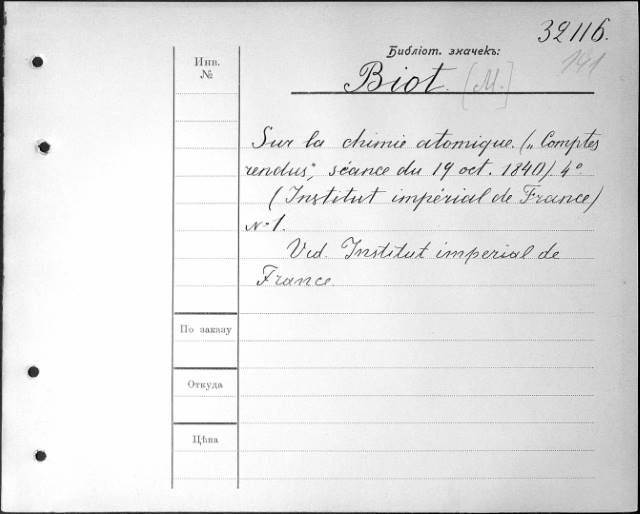 32116.
Библіот. значекъ:
191
Инв.
№
Biot. [M.]
Sur la chimie atomique. („Comptes
rendus“, séance du 19 oct. 1840). 4°.
(Institut impérial de France)
№ 1.
Vid. Institut imperial de
France.
По заказу
Откуда
Цѣна